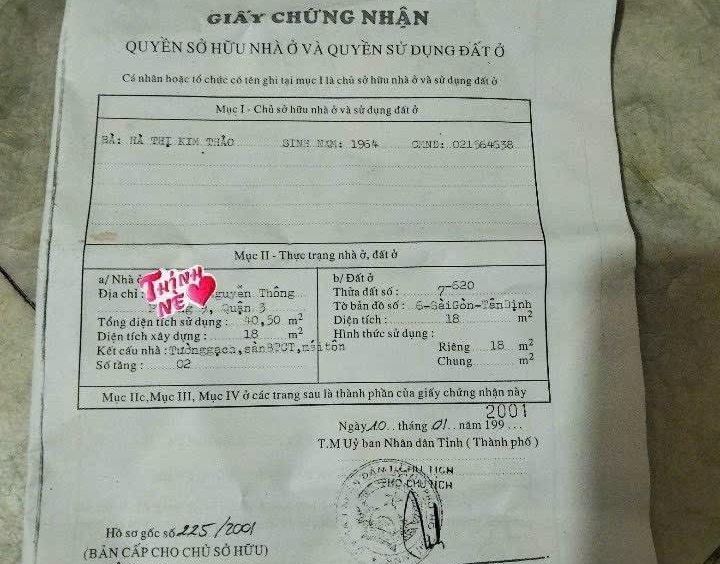 GIẤY CHỨNG NHẬN
QUYỀN SỞ HỮU NHÀ Ở VÀ QUYỀN SỬ DỤNG ĐẤT Ở
Cá nhân hoặc tổ chức có tên ghi tại mục I là chủ sở hữu nhà ở và sử dụng đất ở
Mục I - Chủ sở hữu nhà ở và sử dụng đất ở
BÀ: HÀ THỊ KIM THẢO SINH NĂM: 1964 CMND: 021564638
Mục II - Thực trạng nhà ở, đất ở
a/ Nhà
Địa chỉ : Nguyễn Thông
9, Quận 3
THỊNH
NÈ
Tổng diện tích sử dụng : 40,50 m²
Diện tích xây dựng : 18 m²
Kết cấu nhà : Tườnggạch,sànBTCT,máitôn
Số tầng : 02
b/ Đất ở
Thửa đất số : 7-620
Tờ bản đồ số : 6-SàiGòn-TânĐịnh
Diện tích : 18 m²
Hình thức sử dụng :
Riêng 18 m²
Chung m²
Mục IIc, Mục III, Mục IV ở các trang sau là thành phần của giấy chứng nhận này
2001
Ngày 10 tháng 01 năm 199
T.M Uỷ ban Nhân dân Tỉnh ( Thành phố )
CHỦ TỊCH
PHÓ CHỦ TỊCH
Hồ sơ gốc số 225/2001
(BẢN CẤP CHO CHỦ SỞ HỮU)